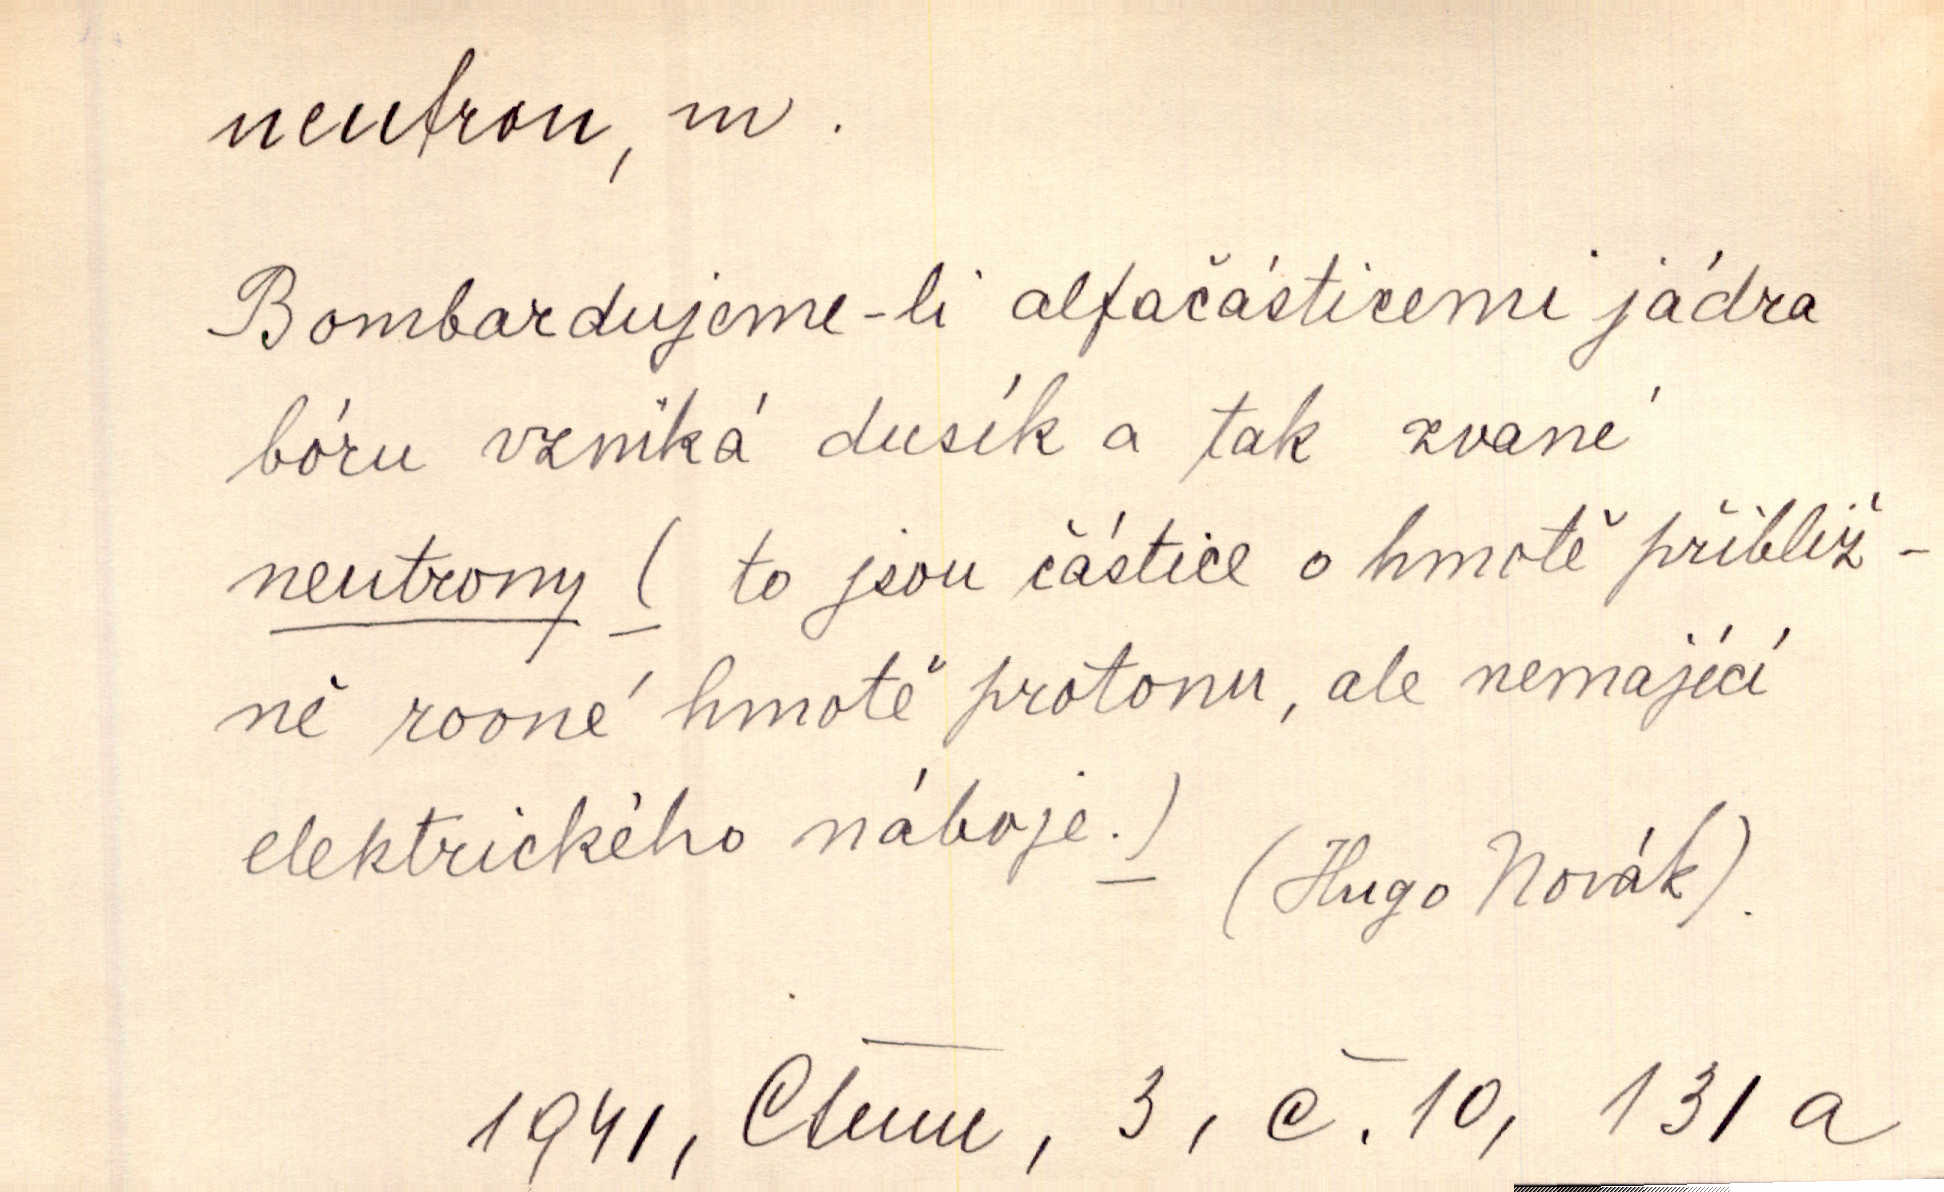 neutron, m.
Bombardujeme-li alfačásticemi jádra
bóru vzniká dusík a tak zvané
neutrony ( to jsou částice o hmotě přibliž-
ně rovné hmotě protonu, ale nemající
elektrického náboje.)
(Hugo Novák).
1941, Čteme, 3, č. 10, 131 a